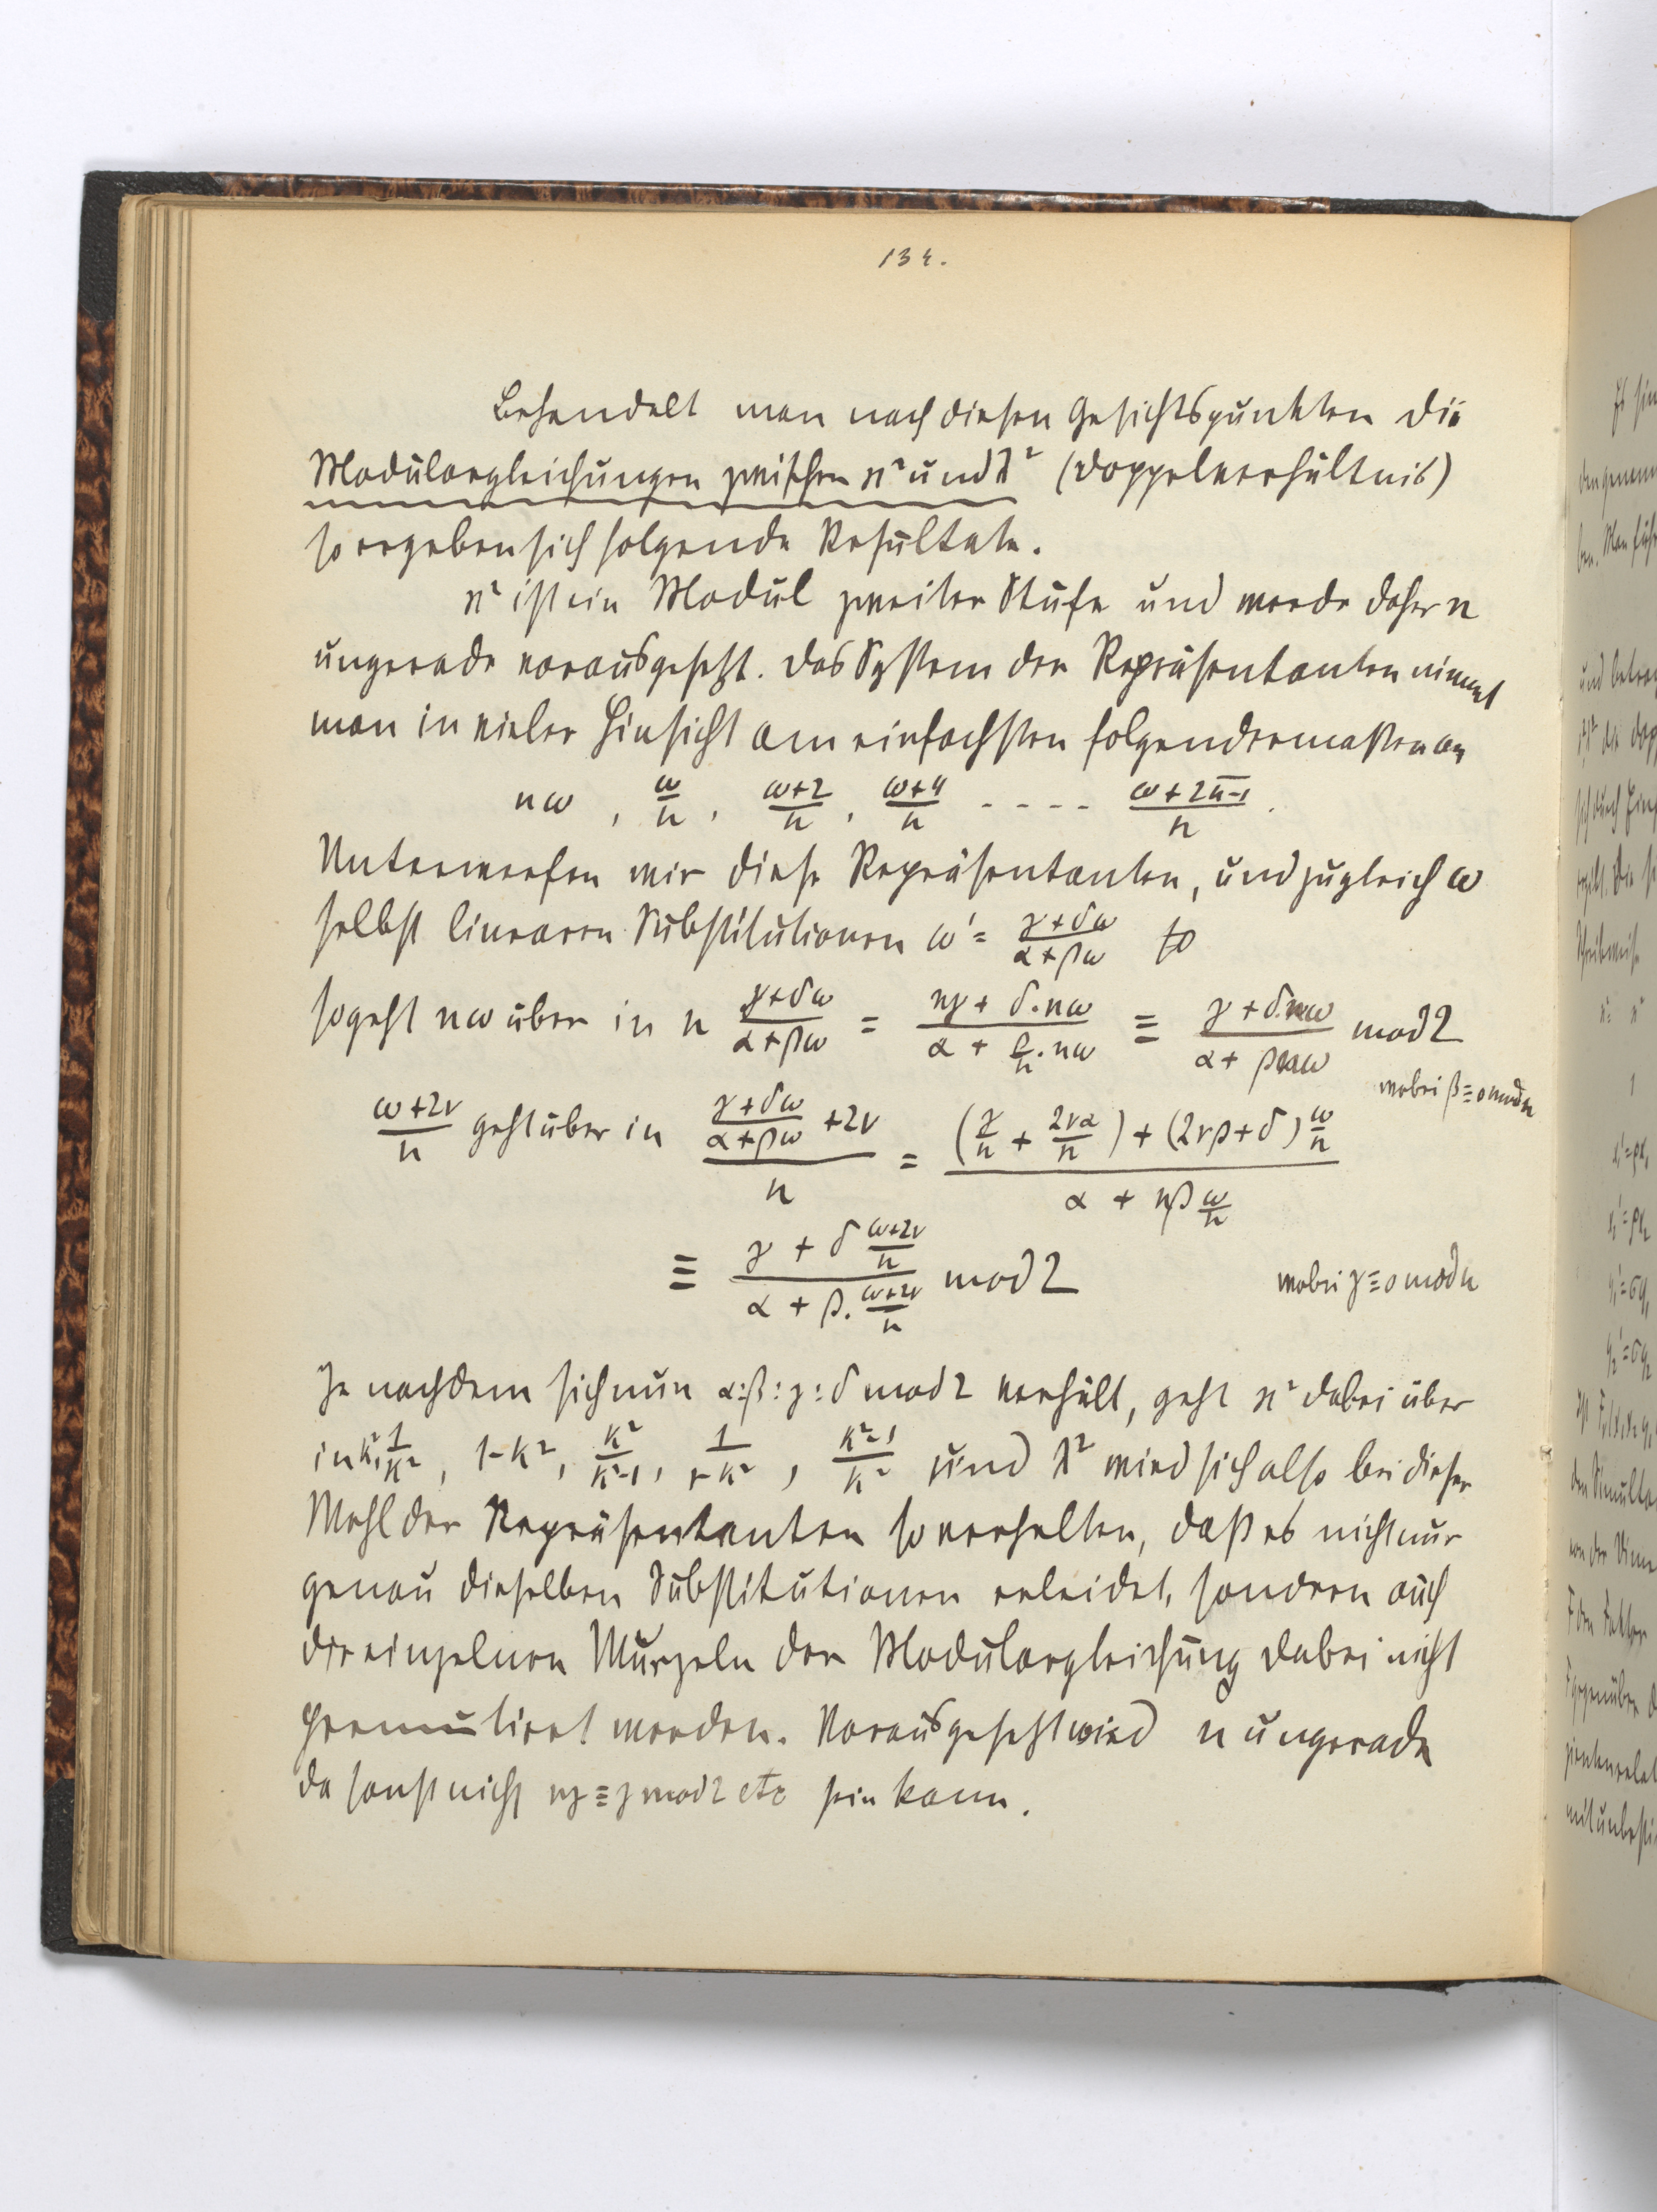 134.
Behandelt man nach diesen Gesichtspunkten die
Modulargleichungen zwischen ϰ² und λ² (Doppelverhältnis)
so ergeben sich folgende Resultate.
ϰ² ist ein Modul zweiter Stufe und werde daher n
ungerade vorausgesetzt. Das System der Repräsentanten nimmt
man in vieler Hinsicht am einfachsten folgendermaßen an
nω, ω/n, (ω+2)/n, (ω+4)/n - - - - (ω+2(n-1))/n.
Unterwerfen wir diese Repräsentanten, und zugleich ω
selbst linearen Substitutionen ω' = (γ+δω)/(α+βω) so
so geht nω über in n (γ+δω)/(α+βω) = (nγ + δ.nω)/(α + β/n.nω) ≡ (γ + δ.nω)/(α + βnω) mod 2
wobei β ≡ 0 mod n
(ω+2ν)/n geht über in ((γ+δω)/(α+βω) + 2ν)/n = ((γ/n + 2να/n) + (2νβ+δ) ω/n)/(α + nβ ω/n)
≡ (γ + δ (ω+2ν)/n)/(α + β. (ω+2ν)/n) mod 2 wobei γ ≡ 0 mod n
Je nachdem sich nun α:β:γ:δ mod 2 verhält, geht ϰ² dabei über
in k², 1/k², 1-k², k²/(k²-1), 1/(1-k²), (k²-1)/k² und λ² wird sich also bei dieser
Wahl der Repräsentanten so verhalten, daß es nicht nur
genau dieselben Substitutionen erleidet, sondern auch
die einzelnen Wurzeln der Modulargleichung dabei nicht
permutirt werden. Vorausgesetzt wird n ungerade
da sonst nicht nγ ≡ γ mod 2 etc sein kann.